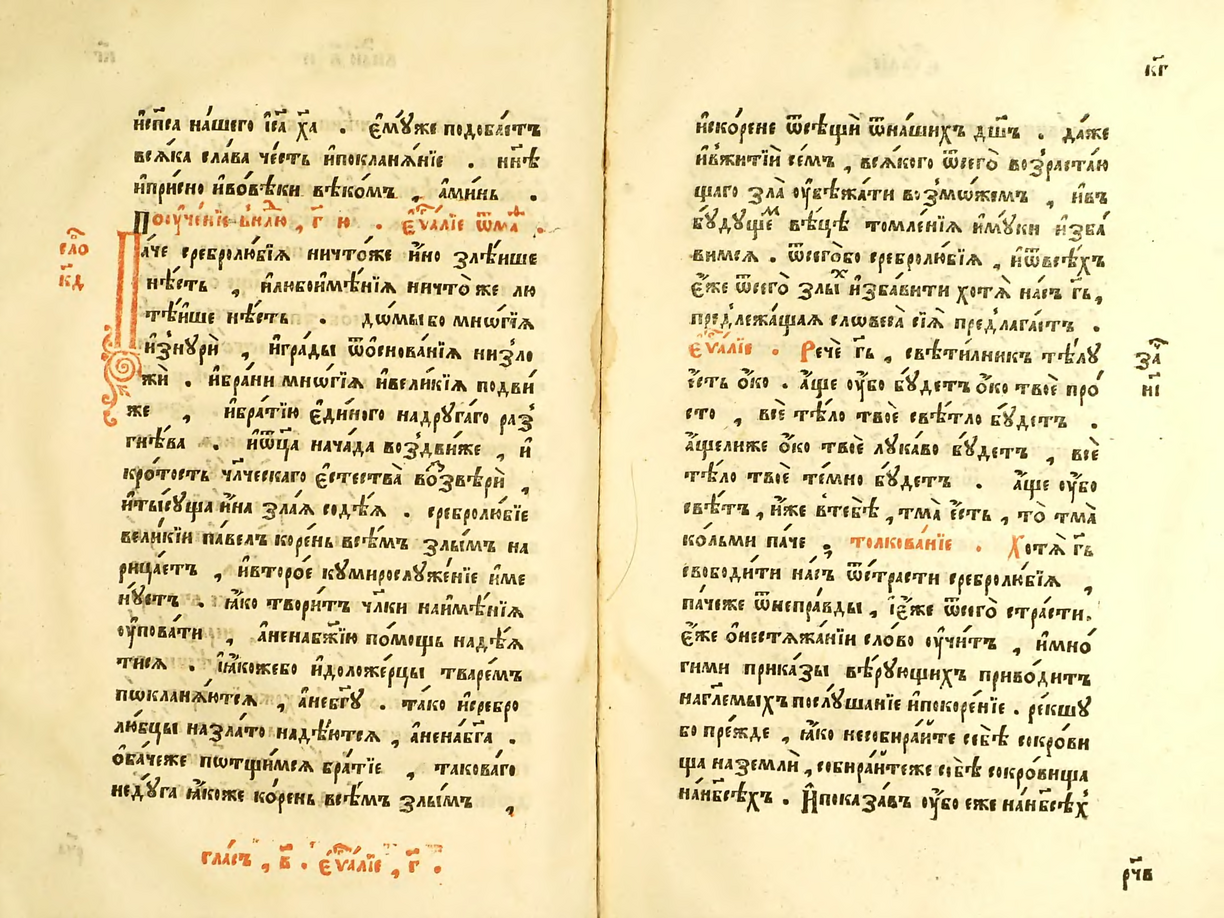 и҆сп҃са на́шего і҆с҃а х҃а . є҆мꙋ́же подоба́етъ
всѧ́ка сла́ва че́сть и҆покланѧ́нїе . нн҃ѣ
и҆при́сно и҆во́вѣки вѣко́мъ , а҆ми́нь .
Поѹче́нїе внⷣлю , г҃ ю . є҆ѵⷢ҇а́лїе ѿ маⷴ .
сло
к҃д
Па́че сребролю́бїѧ ничто́же и҆́но ѕлѣ́ише
нѣ́сть , и҆любоимѣ́нїѧ ничто̀же лю
тѣ́ише нѣ́сть . до́мы бо мнѡ́гїѧ
и҆знꙋрѝ , и҆гра́ды ѿѡснова́нїѧ низло
жѝ . и҆бра́ни мнѡ́гїѧ и҆вели́кїѧ подви́
же , и҆бра́тїю є҆ди́ного надрꙋга́го раз̾
гнѣ́ва . и҆ѻ҆ц҃а нача́да воздви́же , и҆
кро́тость чл҃ческаго є҆стества̀ воѕвѣрѝ ,
и҆ты́сѹща и҆́на ѕла́ѧ содѣ́ѧ . сребролю́бїе
вели́кїи па́велъ ко́рень всѣ́мъ ѕлы́мъ на
рица́етъ , и҆второ́е кꙋмирослꙋже́нїе и҆ме
нꙋ́етъ . ꙗ҆́ко твори́тъ чл҃ки наимѣ́нїѧ
оу҆пова́ти , а҆ненабж҃їю по́мощь надѣ́ѧ
тисѧ . ꙗ҆́коже бо и҆доложе́рцы тва́ремъ
покланѧ́ютсѧ , а҆небг҃ꙋ . та́ко и҆сребро
лю́бцы на зла́то надѣ́ютсѧ , а҆нена́бг҃а .
ѻ҆ба́чеже потщи́мсѧ бра́тїе , такова́го
недꙋ́га ꙗ҆́коже ко́рень всѣ́мъ ѕлы́мъ ,
гла́съ , в҃ . є҆ѵⷢ҇а́лїе , г҃ .
к҃г
и҆скоре́не ѿсѣщѝ ѿна́шихъ дш҃ъ . да́же
и҆вжитїѝ се́мъ , всѧ́кого ѿсего̀ возраста́ю
щаго ѕла̀ оу҆бѣжа́ти возмо́жемъ , и҆въ
бꙋ́дꙋщеⷨ вѣ́цѣ томле́нїѧ и҆мꙋ́ки и҆зба́
вимсѧ . ѿсего́бо сребролю́бїѧ , и҆ѿвсѣ́хъ
є҆́же ѿсего̀ ѕлыⷯ и҆зба́вити хотѧ̀ на́съ гь҃ ,
предлежа́щаѧ словеса̀ сїѧ̀ предлага́етъ .
є҆ѵⷢ҇а́лїе . Речѐ гь҃ , свѣти́лникъ тѣ́лꙋ
є҆́сть ѻ҆́ко . а҆́ще оу҆́бо бꙋ́детъ ѻ҆́ко твоѐ про́
сто , всѐ тѣ́ло твоѐ свѣ́тло бꙋ́детъ .
а҆́щелиже ѻ҆́ко твоѐ лꙋка́во бꙋ́детъ , всѐ
тѣ́ло твоѐ те́мно бꙋ́детъ . а҆́ще оу҆́бо
свѣ́тъ , и҆́же втебѣ̀ , тма̀ є҆́сть , то̀ тма̀
ко́льми па́че . толкова́нїе . Хотѧ̀ гь҃
свободи́ти на́съ ѿстра́сти сребролю́бїѧ ,
па́чеже ѿнепра́вды , є҆́же ѿсего̀ стра́сти .
є҆́же ѻ҆нестѧжа́нїи сло́во оу҆чи́тъ , и҆мно́
гими прика́зы вѣ́рꙋющихъ приво́дитъ
нагл҃емыхъ послꙋша́нїе и҆покоре́нїе . ре́кшꙋ
бо пре́жде , ꙗ҆́ко несобира́йте себѣ̀ сокро́ви
ща на землѝ , собира́йтеже себѣ̀ сокро́вища
нан҃бсѣхъ . И҆показа́въ оу҆́бо еже нан҃бсѣхъ
за́
н҃і
рч҃в